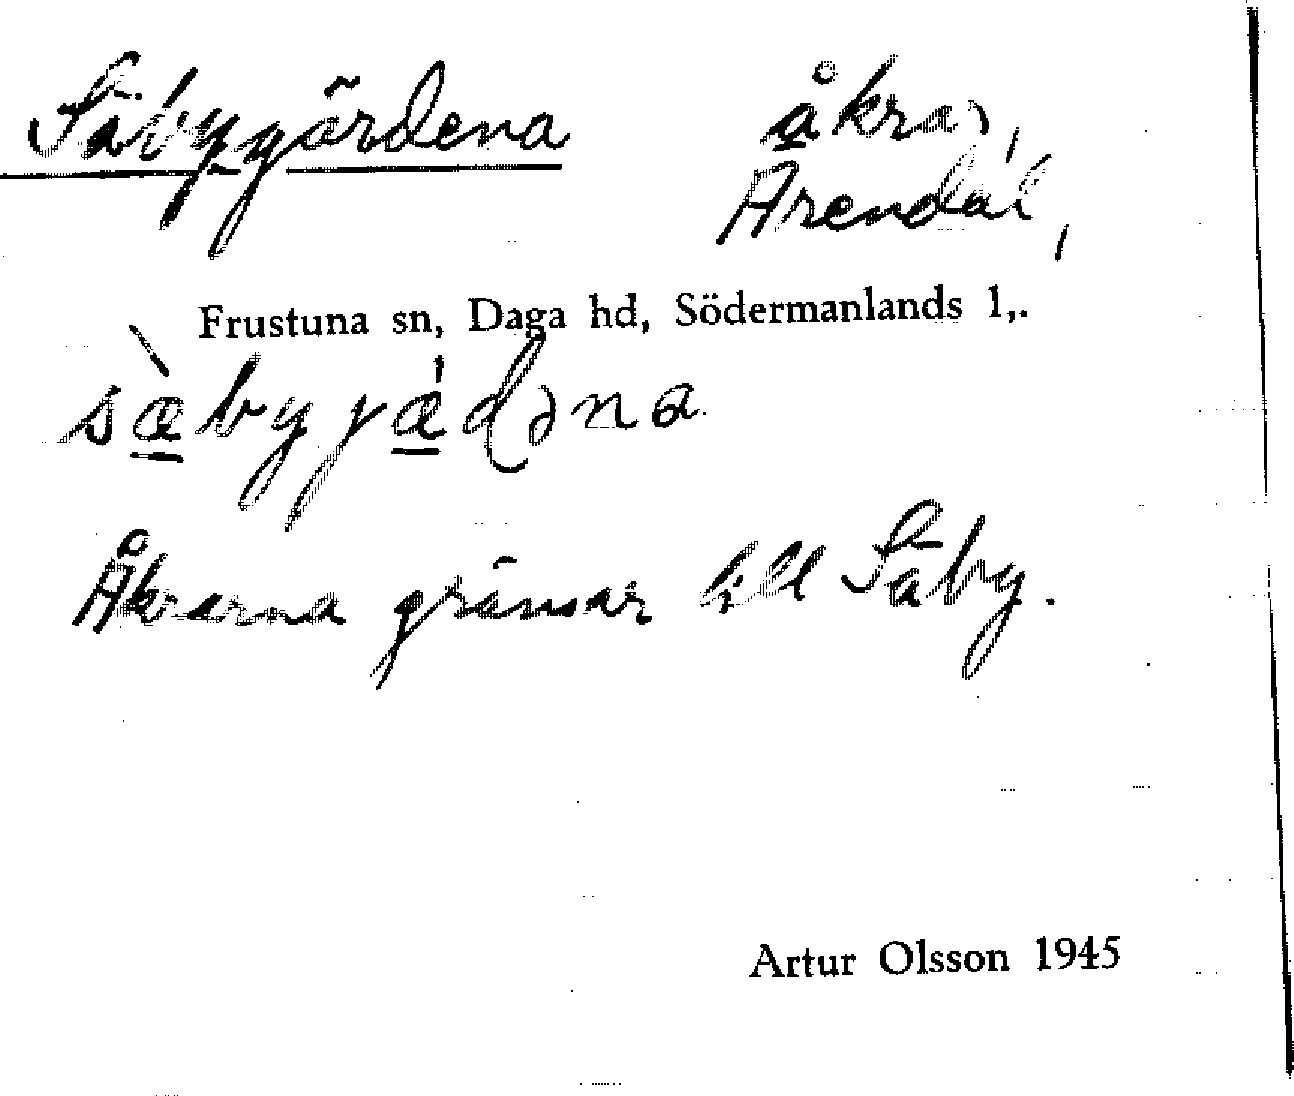 Säbygärdena åkrar,
Arendal,
Frustuna sn, Daga hd, Södermanlands l,.
sæ̀byjǽdəna
Åkrarna gränsar till Säby.
Artur Olsson 1945